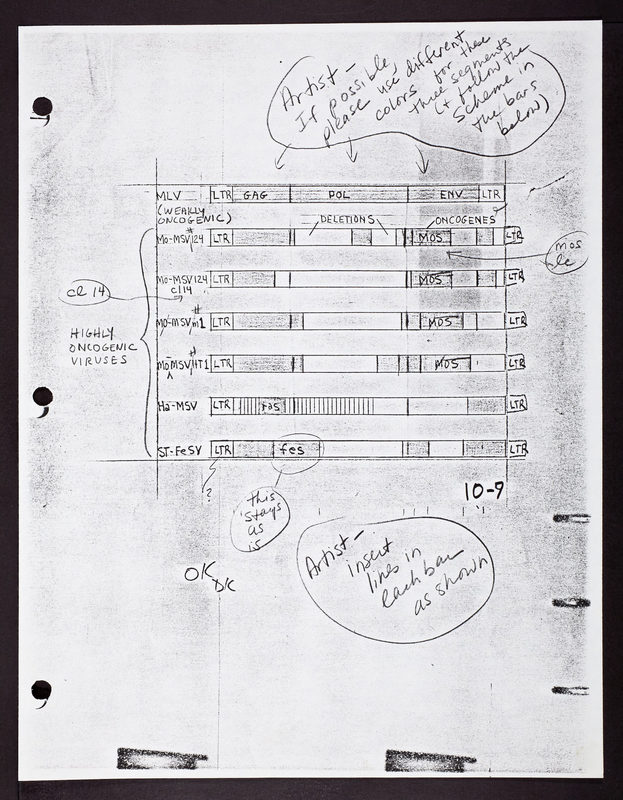 Artist –
If possible,
please use different
colors for these
three segments
(+ follow the
scheme in
the bars
below)
MLV LTR GAG POL ENV LTR
(WEAKLY
ONCOGENIC)
DELETIONS ONCOGENES
Mo-MSV124 LTR MOS LTR
#
mos
Mo-MSV124 LTR MOS LTR
cl14
cl 14
HIGHLY
ONCOGENIC
VIRUSES
Mo-MSVm1 LTR MOS LTR
#
Mo-MSVHT1 LTR MOS LTR
#
Ha-MSV LTR ras LTR
ST-FeSV LTR fes LTR
?
this
stays
as
is
10-9
Artist –
insert
lines in
each bar
as shown
OK